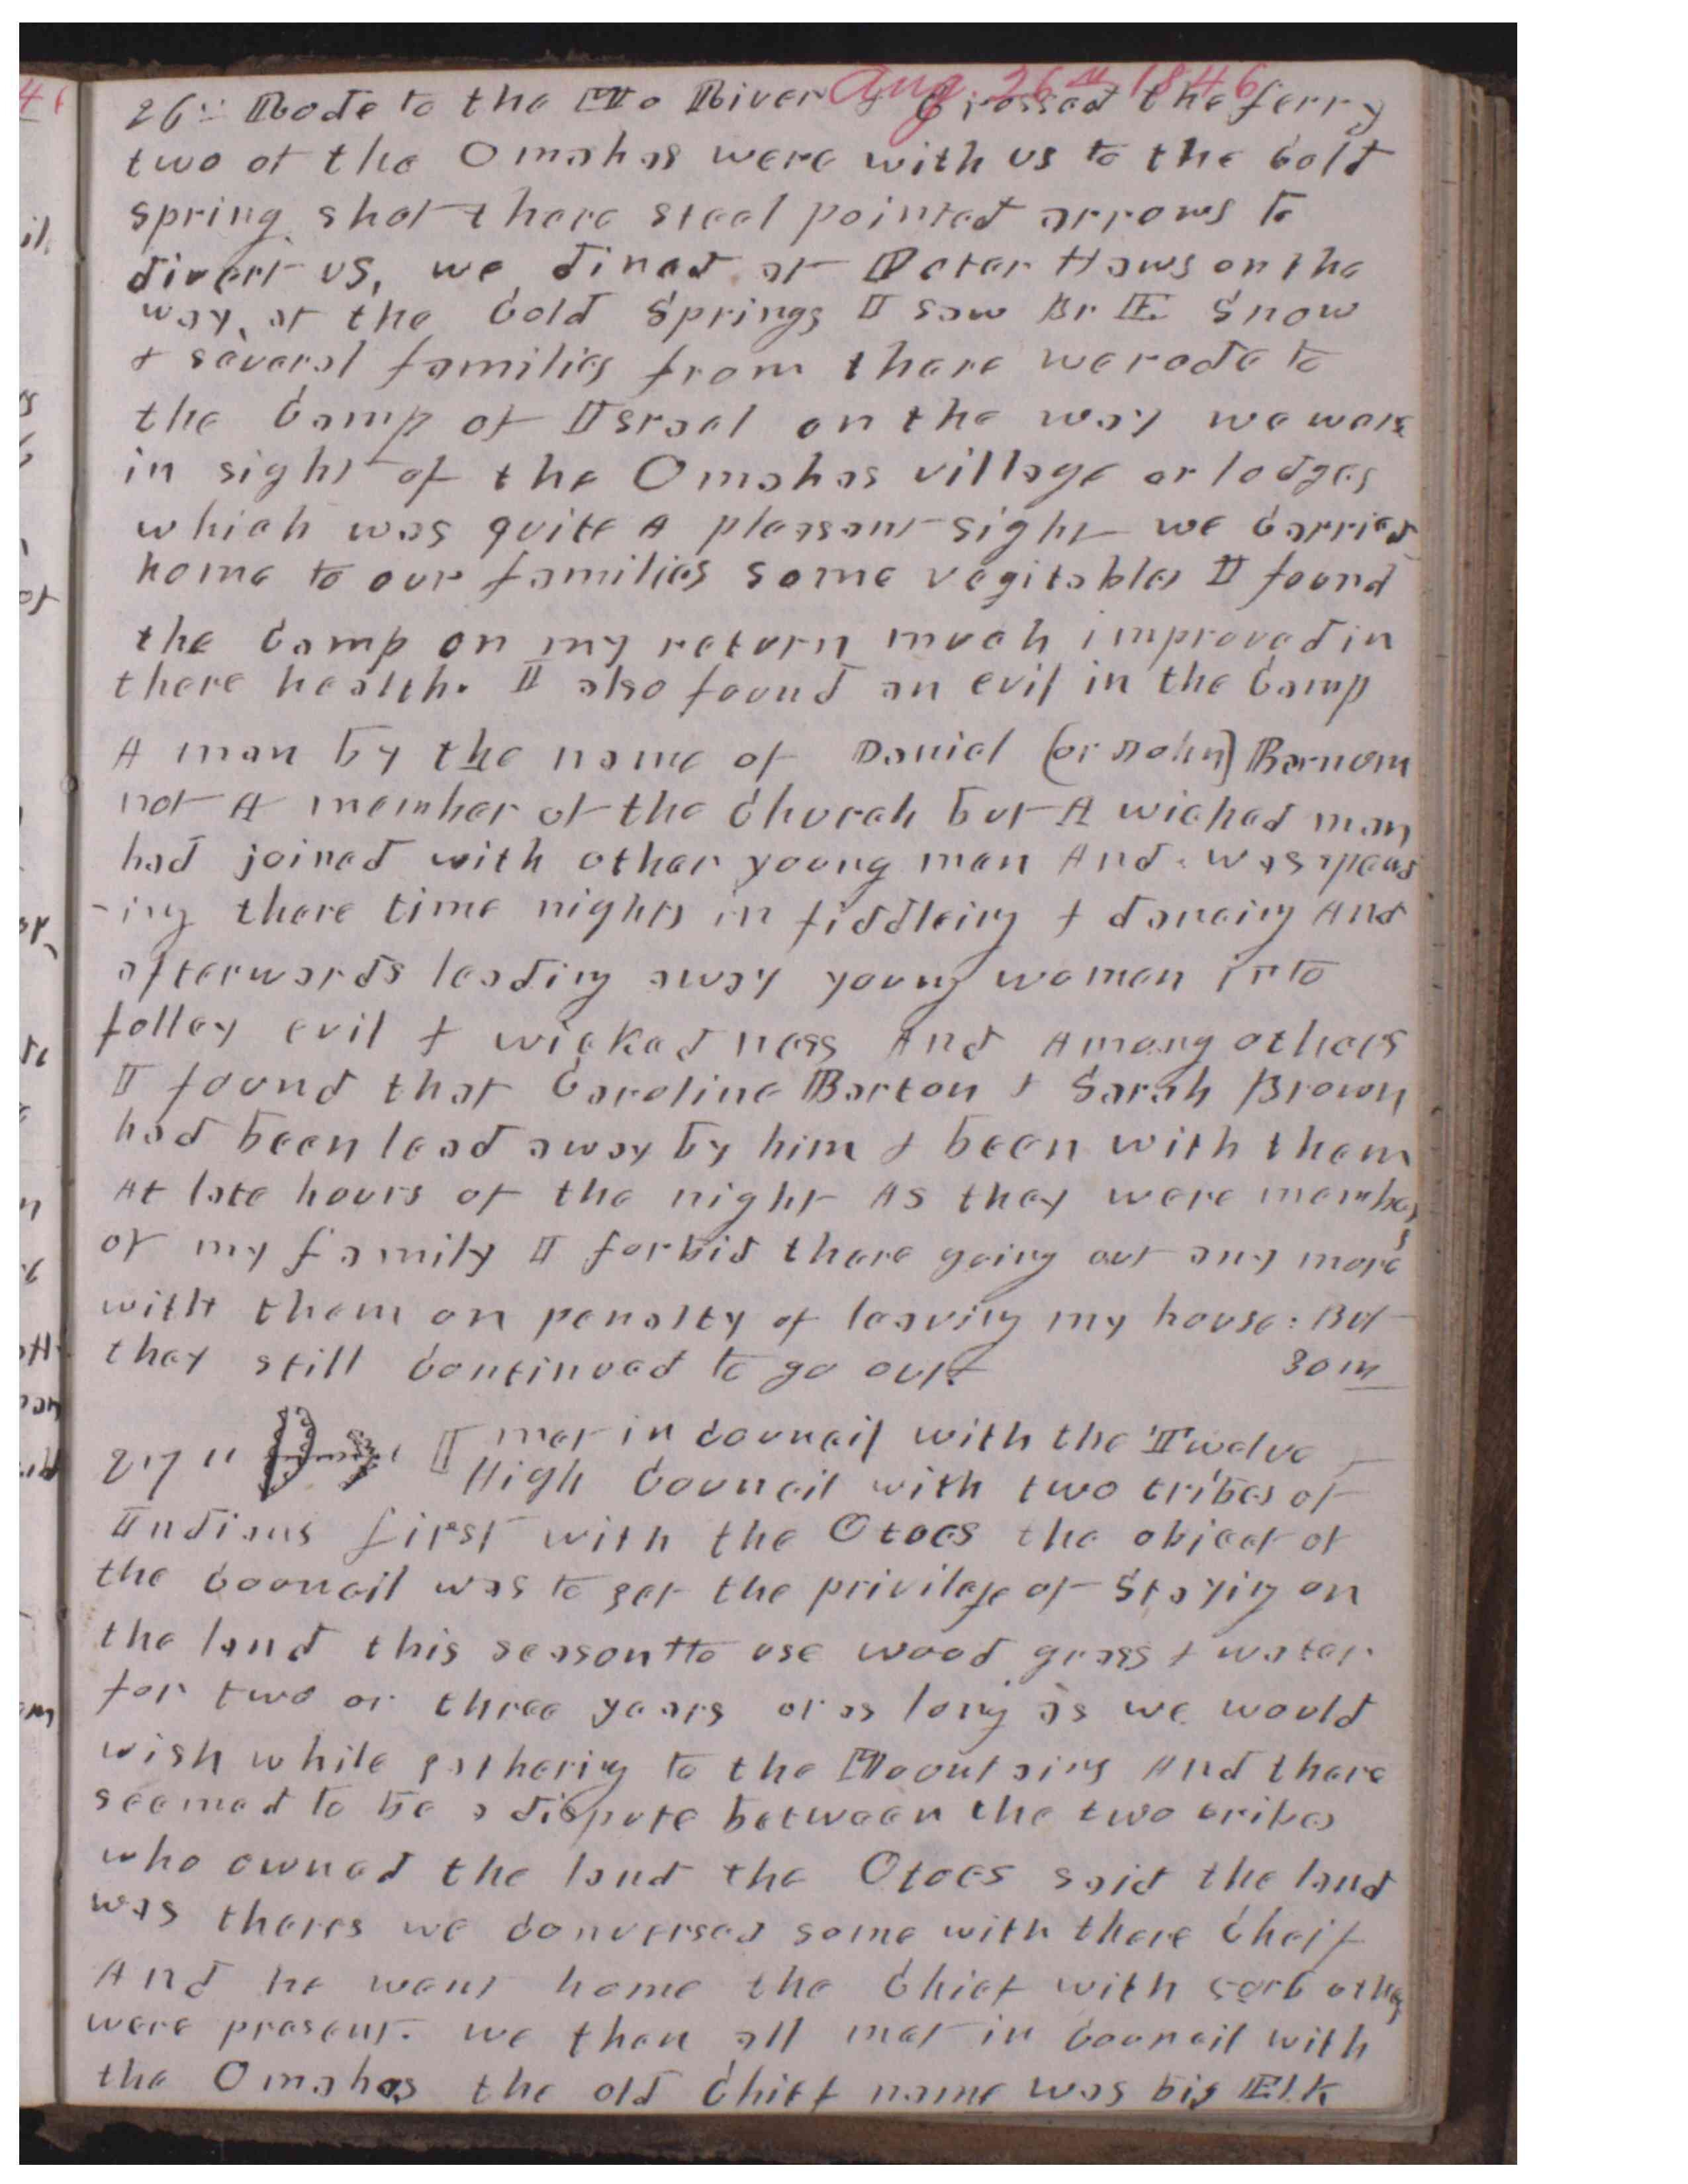 Aug. 26th 1846
26th Rode to the Mo River & Crossed the ferry
two of the Omahas were with us to the Cold
spring shot there steel pointed arrows to
divert us, we dined at Peter Haws on the
way, at the Cold Springs I saw Br E Snow
& several families from there we rode to
the Camp of Israel on the way we were
in sight of the Omahas village or lodges
which was quite A pleasant sight we Carried
home to our families some vegitables I found
the Camp on my return much improved in
there health. I also found an evil in the Camp
A man by the name of Daniel (or John) Barnum
not A member of the Church but A wicked man
had joined with other young men And was spend
-ing there time nights in fiddleing & dancing And
afterwards leading away young women into
folley evil & wickedness And Among others
I found that Caroline Barton & Sarah Brown
had been lead away by him & been with them
At late hours of the night As they were members
of my family I forbid there going out any more
with them on penalty of leaving my house: But
they still Continued to go out. 30 m
27th I met in council with the Twelve
High Council with two tribes of
Indians first with the Otoes the object of
the Council was to get the privilege of Staying on
the land this season to use wood grass & water
for two or three years or as long as we would
wish while gathering to the Mountains And there
seemed to be a dispute between the two tribes
who owned the land the Otoes said the land
was theres we conversed some with there Cheif
And he went home the Chief with others
were present. we then all met in Council with
the Omahas the old Chief name was big Elk